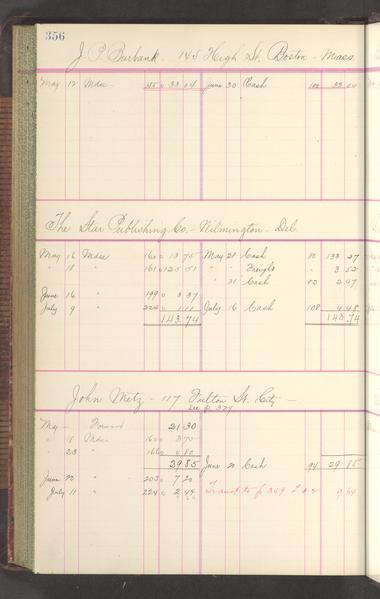 356
J. P. Burbank. 145 High St. Boston - Mass.
May 12 Mdse 33 04 June 30 Cash 33 04
The Star Publishing Co. - Wilmington - Del.
May 16 Mdse 160 13 75 May 28 Cash 80 133 27
" 18 " 161 125 51 " " Freight " 3 52
" 31 Cash 2 47
June 16 " 199 3 37
July 9 " 224 1 11 July 16 Cash 108 4 48
143.74 143.74
John Metz - 117 Fulton St. City -
See p. 374
May - Forward 21 30
" 18 Mdse 160
" 23 " 166
29 85 June 20 Cash 94 29 85
June 20 " 203 7 20
July 11 " 224 2 44 Transf to p 359 L 9 64